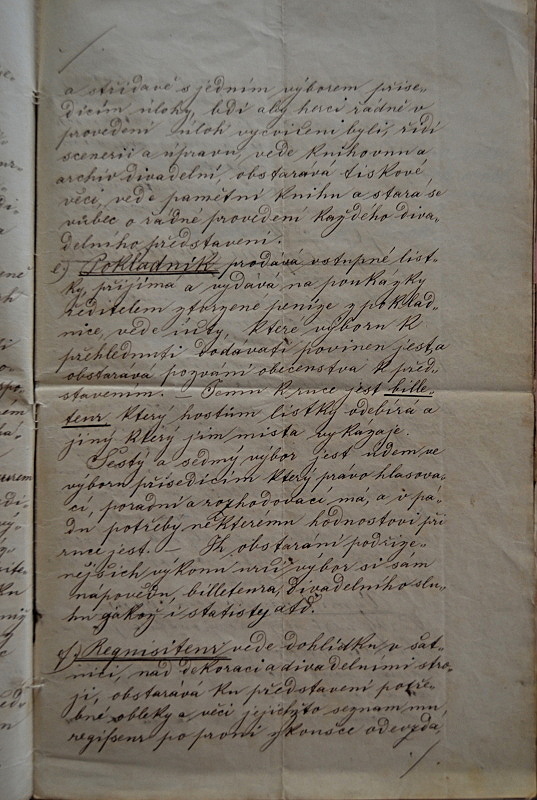 a střídavě s jedním výborem přise-
dícím úlohy, bdí aby herci řádně v
provedení úloh vycvičeni byli, řídí
scenerii a úpravu, vede knihovnu a
archiv divadelní, obstarává tiskové
věci, vede pamětní knihu a stará se
vůbec o řádné provedení každého diva-
delního představení.
e) Pokladník prodává vstupné líst-
ky, přijímá a vydává na poukázky
ředitelem ztvrzené peníze z poklad-
nice, vede účty, které výboru k
přehlednutí dodávati povinen jest, a
obstarává pozvání obecenstva k před-
stavením. — Jemu k ruce jest bille-
teur který hostům lístky odebírá a
jiný který jim místa vykázaje.
Šestý a sedmý výbor jest údem ve
výboru přísedícím který právo hlasova-
cí, poradní a rozhodovací má, a v pa-
du potřeby některému hodnostovi při
ruce jest. — Ku obstarání podříze-
nějších výkonů určí výbor si sám
napovědu, billeteura, divadelního slu-
hu jakož i statisty atd.
f.) Requisiteur vede dohlídku v šat-
nici, nad dekoracia divadelními stro-
ji, obstarává ku představení potře-
bné obleky a věci jejichžto seznam mu
regisseur po první zkoušce odevzdá,